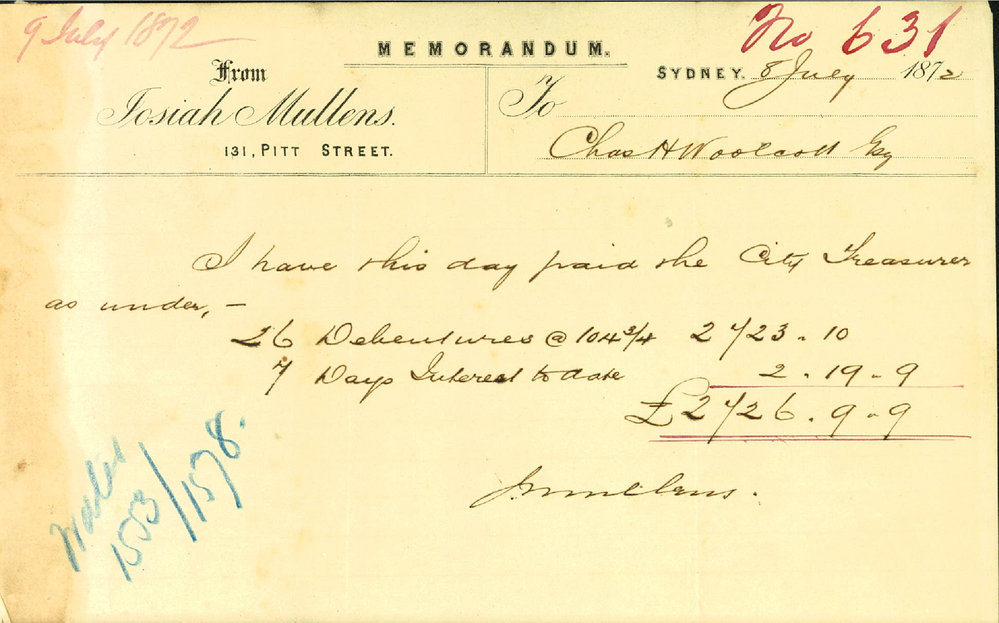 9 July 1872
No 631
MEMORANDUM.
From
Josiah Mullens.
131, PITT STREET.
SYDNEY, 8 July 1872
To
Chas H Woolcott Esq
I have this day paid the City Treasurer
as under, —
26 Debentures @ 104 3/4 2723 . 10
7 Days Interest to date 2 . 19 . 9
£2726 . 9 . 9
JMullens.
1553/1578.